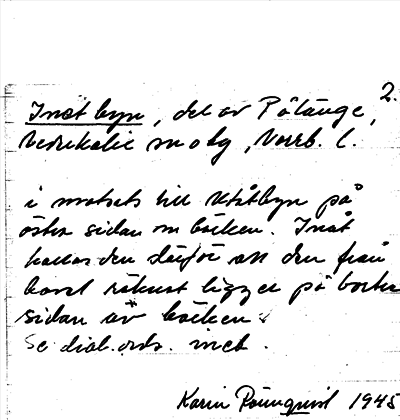 2.
Inåt byn, del av Pålänge,
Nederkalix sn o tg, Norrb. l.
i motsats till Utåtbyn på
östra sidan om bäcken. Inåt
kallas den därför att den från
havet räknat ligger på bortre
sidan av bäcken.
Se dial.ords. inet.
Karin Rönnquist 1945